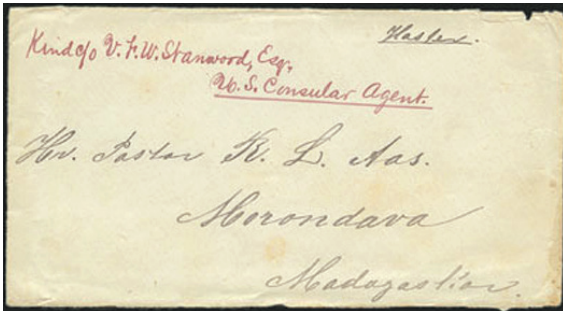 Haster.
Kind c/o V. F. W. Stanwood, Esq.
U. S. Consular Agent.
Hr. Pastor K. L. Aas.
Morondava
Madagaskar.